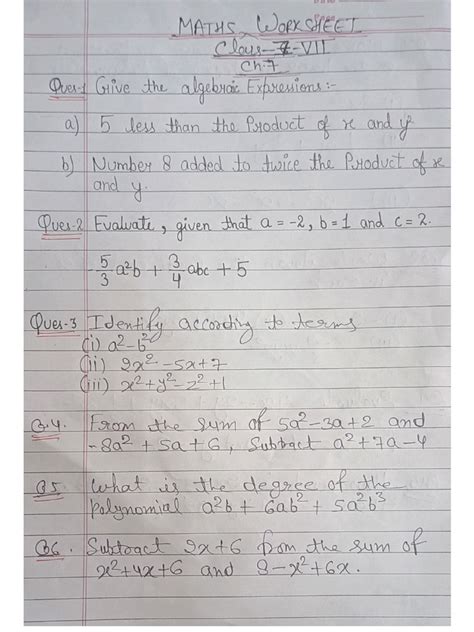 MATHS WORKSHEET
Class-7-VII
Ch.7
Ques-1 Give the algebraic Expressions:-
a) 5 less than the Product of x and y²
b) Number 8 added to twice the Product of x
and y.
Ques-2 Evaluate, given that a = -2, b = 1 and c = 2.
-5/3 a²b + 3/4 abc + 5
Ques-3 Identify according to terms
(i) a² - b²
(ii) 2x² - 5x + 7
(iii) x² + y² - z² + 1
Q.4. From the sum of 5a² - 3a + 2 and
-8a² + 5a + 6, Subtract a² + 7a - 4
Q5. What is the degree of the
polynomial a²b + 6ab² + 5a²b³
Q6. Subtract 2x + 6 from the sum of
x² + 4x + 6 and 8 - x² + 6x.